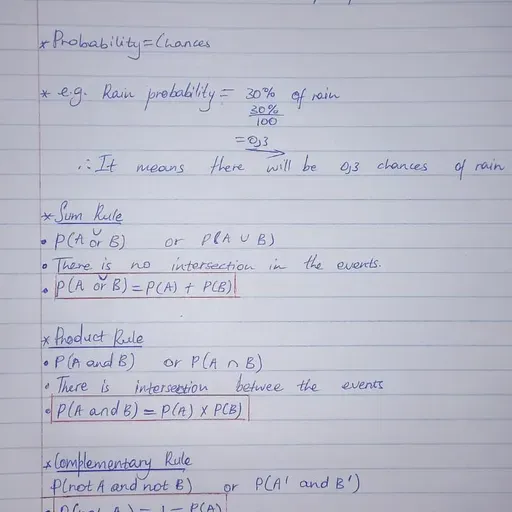 * Probability = Chances
* e.g. Rain probability = 30% of rain
30%
100
= 0,3
∴ It means there will be 0,3 chances of rain
* Sum Rule
• P(A or B) or P(A ∪ B)
• There is no intersection in the events.
• P(A or B) = P(A) + P(B)
* Product Rule
• P(A and B) or P(A ∩ B)
• There is intersection betwee the events
• P(A and B) = P(A) x P(B)
* Complementary Rule
P(not A and not B) or P(A' and B')
• P(not A) = 1 - P(A)